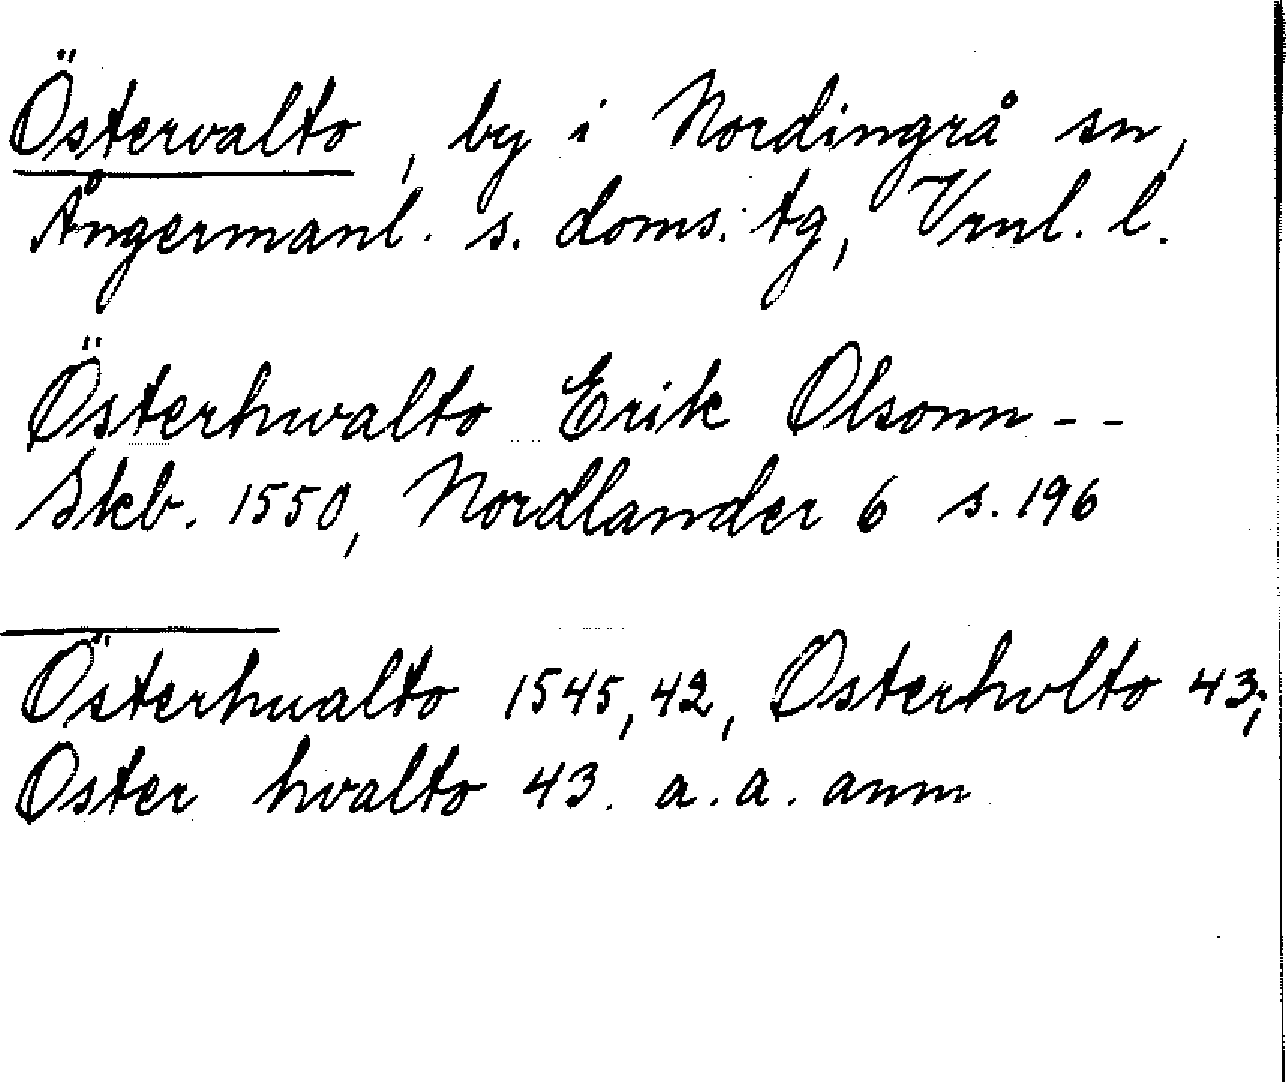 Östervalto, by i Nordingrå sn,
Ångermanl. s. doms. tg, Vrnl. l.
Österhwalto Erik Olsonn - -
Skb. 1550, Nordlander 6 s. 196
Österhualto 1545, 42, Osterhvlto 43;
Oster hvalto 43. a. a. anm